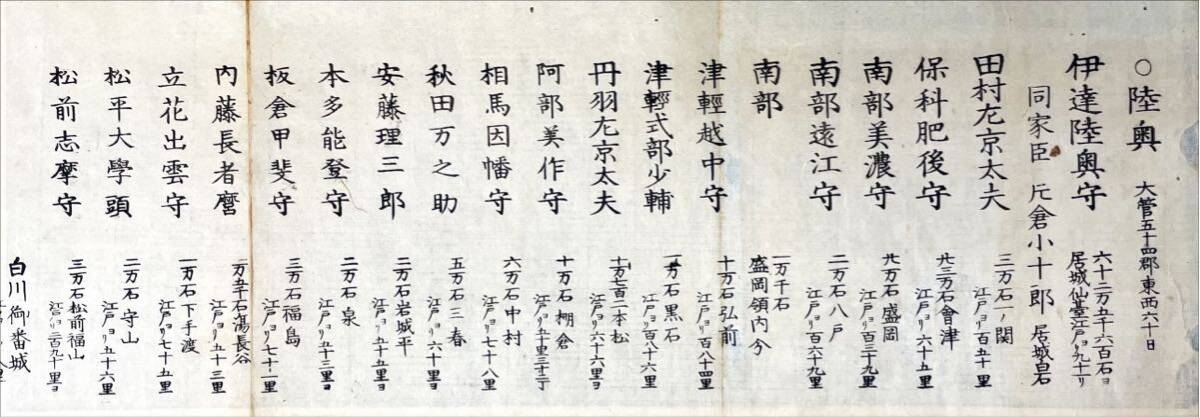 ○陸奥 大管五十四郡東西六十日
伊達陸奥守 六十二万五千六百石ヨ
居城仙臺江戸ヨリ九十リ
同家臣 片倉小十郎 居城白石
田村左京太夫 三万石一ノ関
江戸ヨリ百五十里
保科肥後守 廿三万石會津
江戸ヨリ六十五里
南部美濃守 廿万石盛岡
江戸ヨリ百三十九里
南部遠江守 二万石八戸
江戸ヨリ百六十九里
南部 一万千石
盛岡領内分
津輕越中守 十万石弘前
江戸ヨリ百八十四里
津輕式部少輔 一万石黒石
江戸ヨリ百八十六里
丹羽左京太夫 十万七百二本松
江戸ヨリ六十六里ヨ
阿部美作守 十万石棚倉
江戸ヨリ
相馬因幡守 六万石中村
江戸ヨリ七十八里
秋田万之助 五万石三春
江戸ヨリ六十里ヨ
安藤理三郎 二万石岩城平
江戸ヨリ五十五里ヨ
本多能登守 二万石泉
江戸ヨリ五十三里ヨ
板倉甲斐守 三万石福島
江戸ヨリ七十一里
内藤長者麿 石湯長谷
江戸ヨリ五十三里
立花出雲守 一万石下手渡
江戸ヨリ七十五里
松平大學頭 二万石守山
江戸ヨリ五十六里
松前志摩守 三万石松前福山
江戸ヨリ二百九十里ヨ
白川御番城